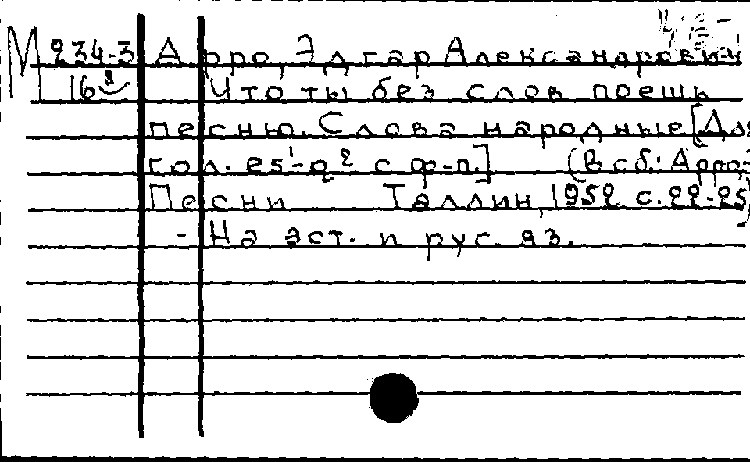 М 234-3 Арро, Эдгар Александрович
16⁸ Что ты без слов поешь
песню. Слова народные [Для
гол. es¹-g² с ф-п.] (В сб.: Арро
Песни Таллин, 1952 с. 22-25)
- На эст. и рус. яз.